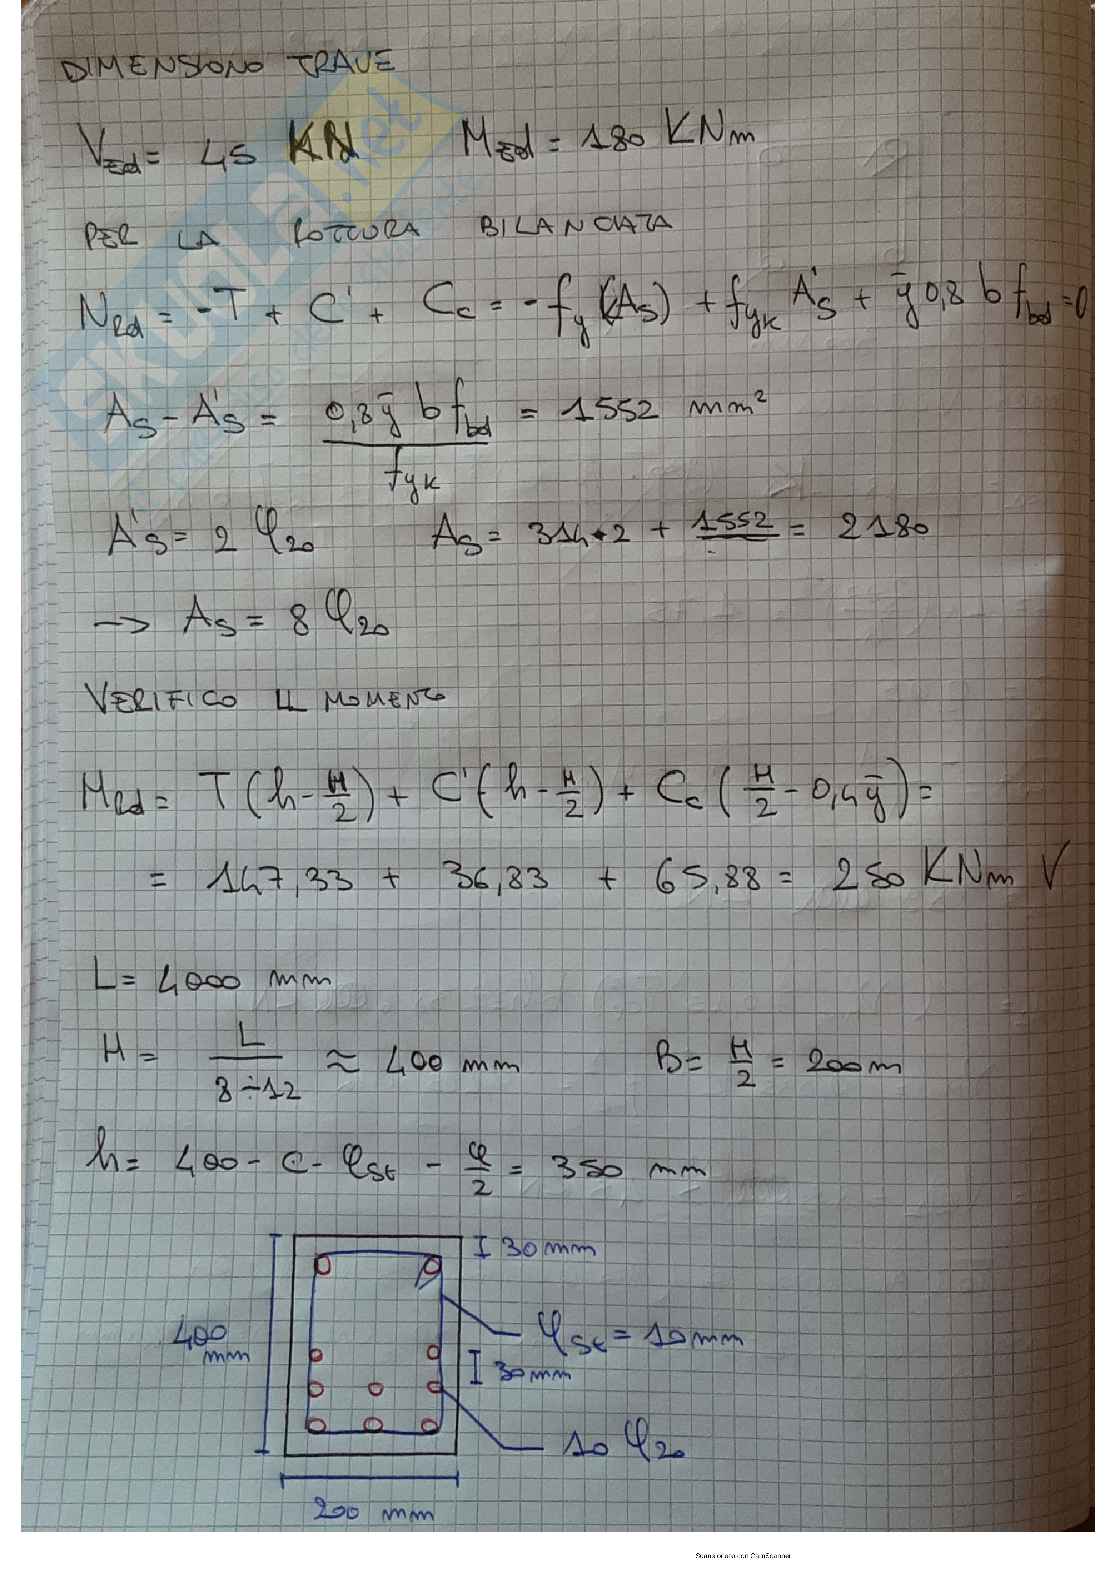 DIMENSIONO TRAVE
V_Ed = 45 KN M_Ed = 180 KNm
PER LA ROTTURA BILANCIATA
N_Rd = -T + C' + C_c = -f_y (A_s) + f_yk A's + ȳ 0,8 b f_bd = 0
A_s - A's = 0,8 ȳ b f_bd / f_yk = 1552 mm²
A's = 2 φ20 A_s = 314*2 + 1552 = 2180
→ A_s = 8 φ20
VERIFICO IL MOMENTO
M_Rd = T (h - H/2) + C' (h - H/2) + C_c (H/2 - 0,4 ȳ) =
= 147,33 + 36,83 + 65,88 = 250 KNm V
L = 4000 mm
H = L / 8÷12 ≈ 400 mm B = H/2 = 200m
h = 400 - c - φst - φ/2 = 350 mm
30 mm
400 mm
φst = 10 mm
30 mm
10 φ20
200 mm
SKUOLA.net